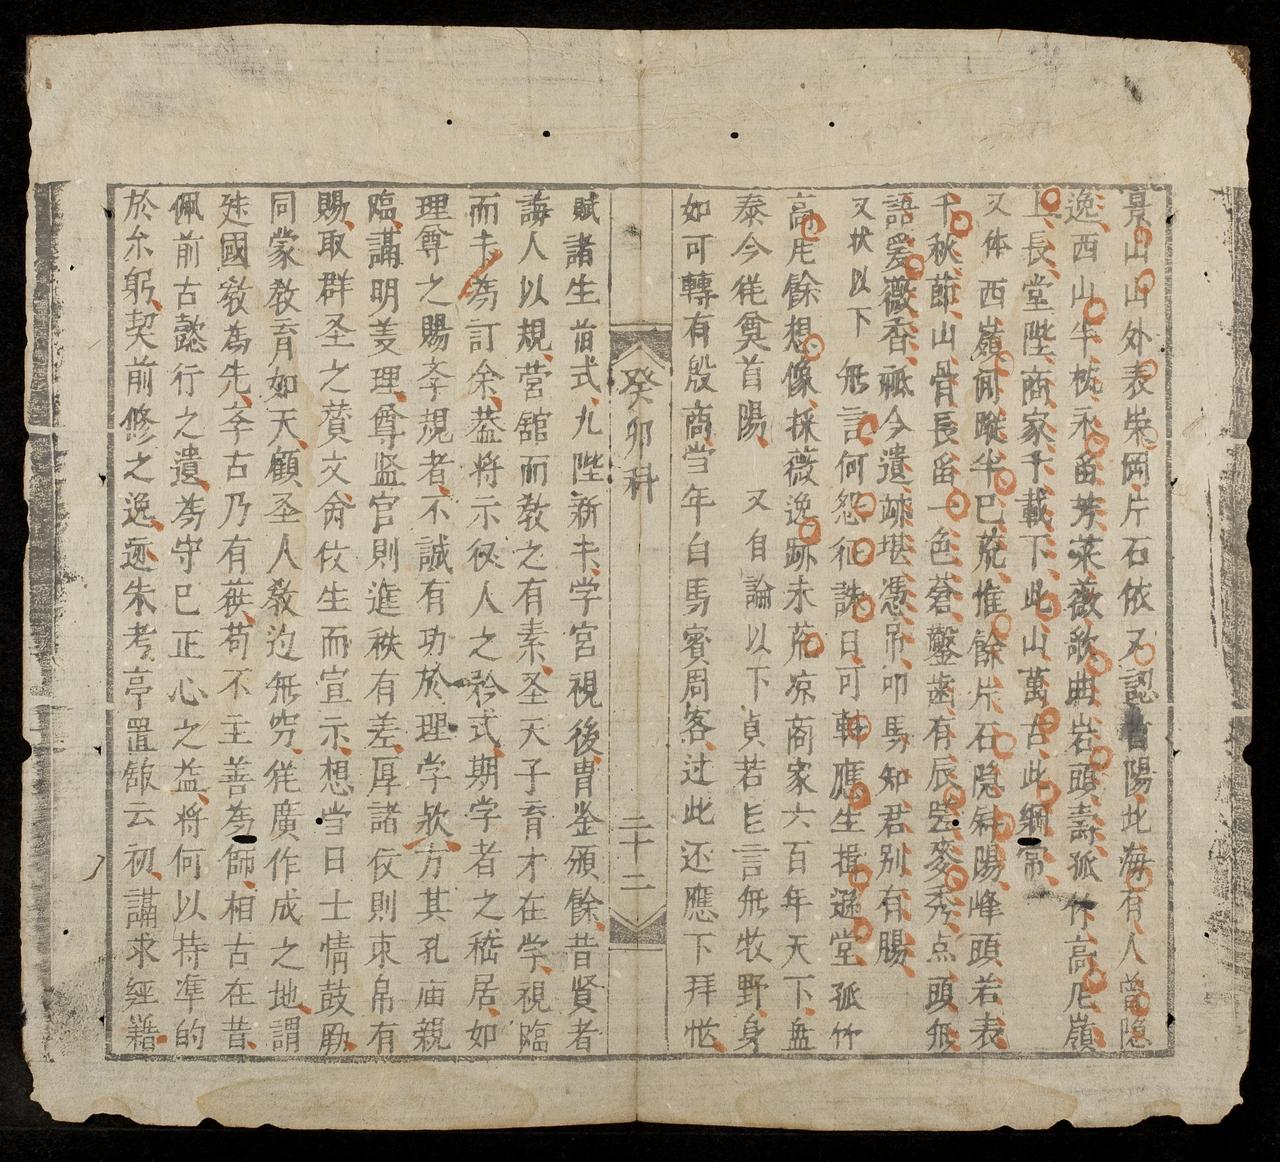 景山山外表柴岡片石依又認首陽北海有人曾隐
逸西山半枕永畄芳菜薇歌曲岩頭壽孤竹高風嶺
上長堂陛商家千載下此山萬古此綱常
又体 西嶺何蹤半巳荒惟餘片石隐斜陽峰頭若表
千秋節山骨長畄一色蒼鑿歯有辰 麥秀点頭無
語爰薇香祗今遺跡堪憑吊叩馬知君别有腸
又状以下 無言何怨征誅日可軒應生揖遜堂孤竹
高風餘想像採薇逸跡未荒凉商家六百年天下盍
泰今従奠首陽 又自論以下貞若 言無牧野身
如可轉有殷商当年白馬賓周客过此还應下拜恾
癸卯科
二十二
賦諸生 式九陛新未学宮視後胄釜頒餘昔賢者
誨人以規营舘而教之有素圣天子育才在学視臨
而未為訂余葢将示 人之矜式期学者之嵇居如
理尊之賜李規者不誠有功於理学欤方其孔庙親
臨講明羙理尊监官則進秩有差厚諸 則束帛有
賜取群圣之賛文俞 生而宣示想当日士情鼓励
同蒙教育如天顧圣人教迩無穷従廣作成之地謂
建國教為先李古乃有 苟不主善為師相古在昔
佩前古懿行之遺為守巳正心之益将何以持準的
於尔躬契前修之逸迹朱考亭置舘云初講求經籍